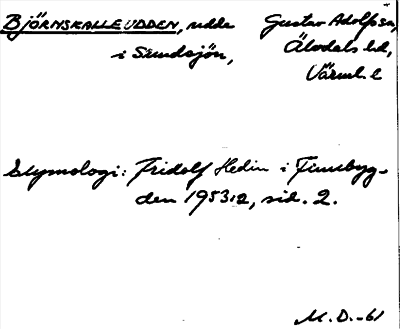 BJÖRNSKALLEUDDEN, udde Gustav Adolfs sn,
i Sundsjön, Älvdals hd,
Värml. l
Etymologi: Fridolf Hedin i Finnbyg-
den 1953:2, sid. 2.
M. D. -61